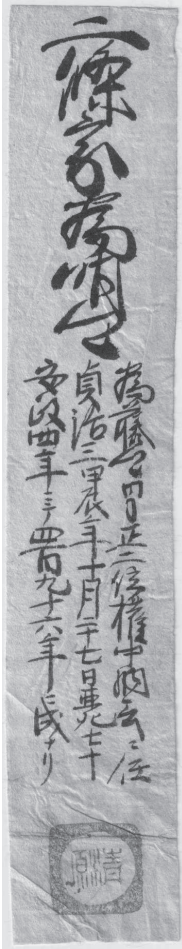 二條家為明
為藤公男正二位權中納言ニ任
貞治三甲辰年十月二十七日薨七十
安政四年ニテ四百九十六年ニ成ナリ